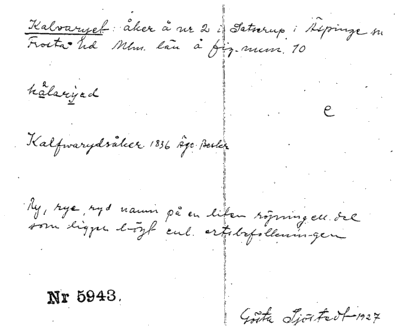 Kalvaryet: åker å nr 2 i Satserup i Äspinge sn
Frosta hd Mlm. län å fig. num. 10
kålaryed
e
Kalfwarydsåker 1836 Äge. Beskr
Ry, rye, ryd namn på en liten röjning ell. del
som ligger högt enl. ortsbefolkningen
Nr 5943.
Gösta Sjöstedt 1927